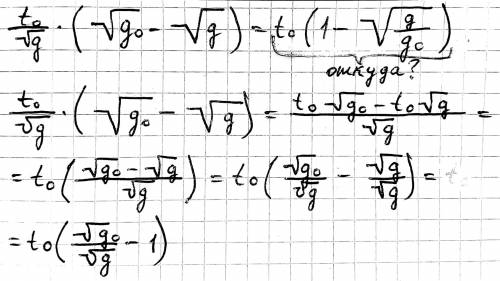 t₀/√g · (√g₀ − √g) = t₀(1 − √(g/g₀)).
откуда?
t₀/√g · (√g₀ − √g) = (t₀√g₀ − t₀√g)/√g =
= t₀((√g₀ − √g)/√g) = t₀(√g₀/√g − √g/√g) =
= t₀(√g₀/√g − 1)